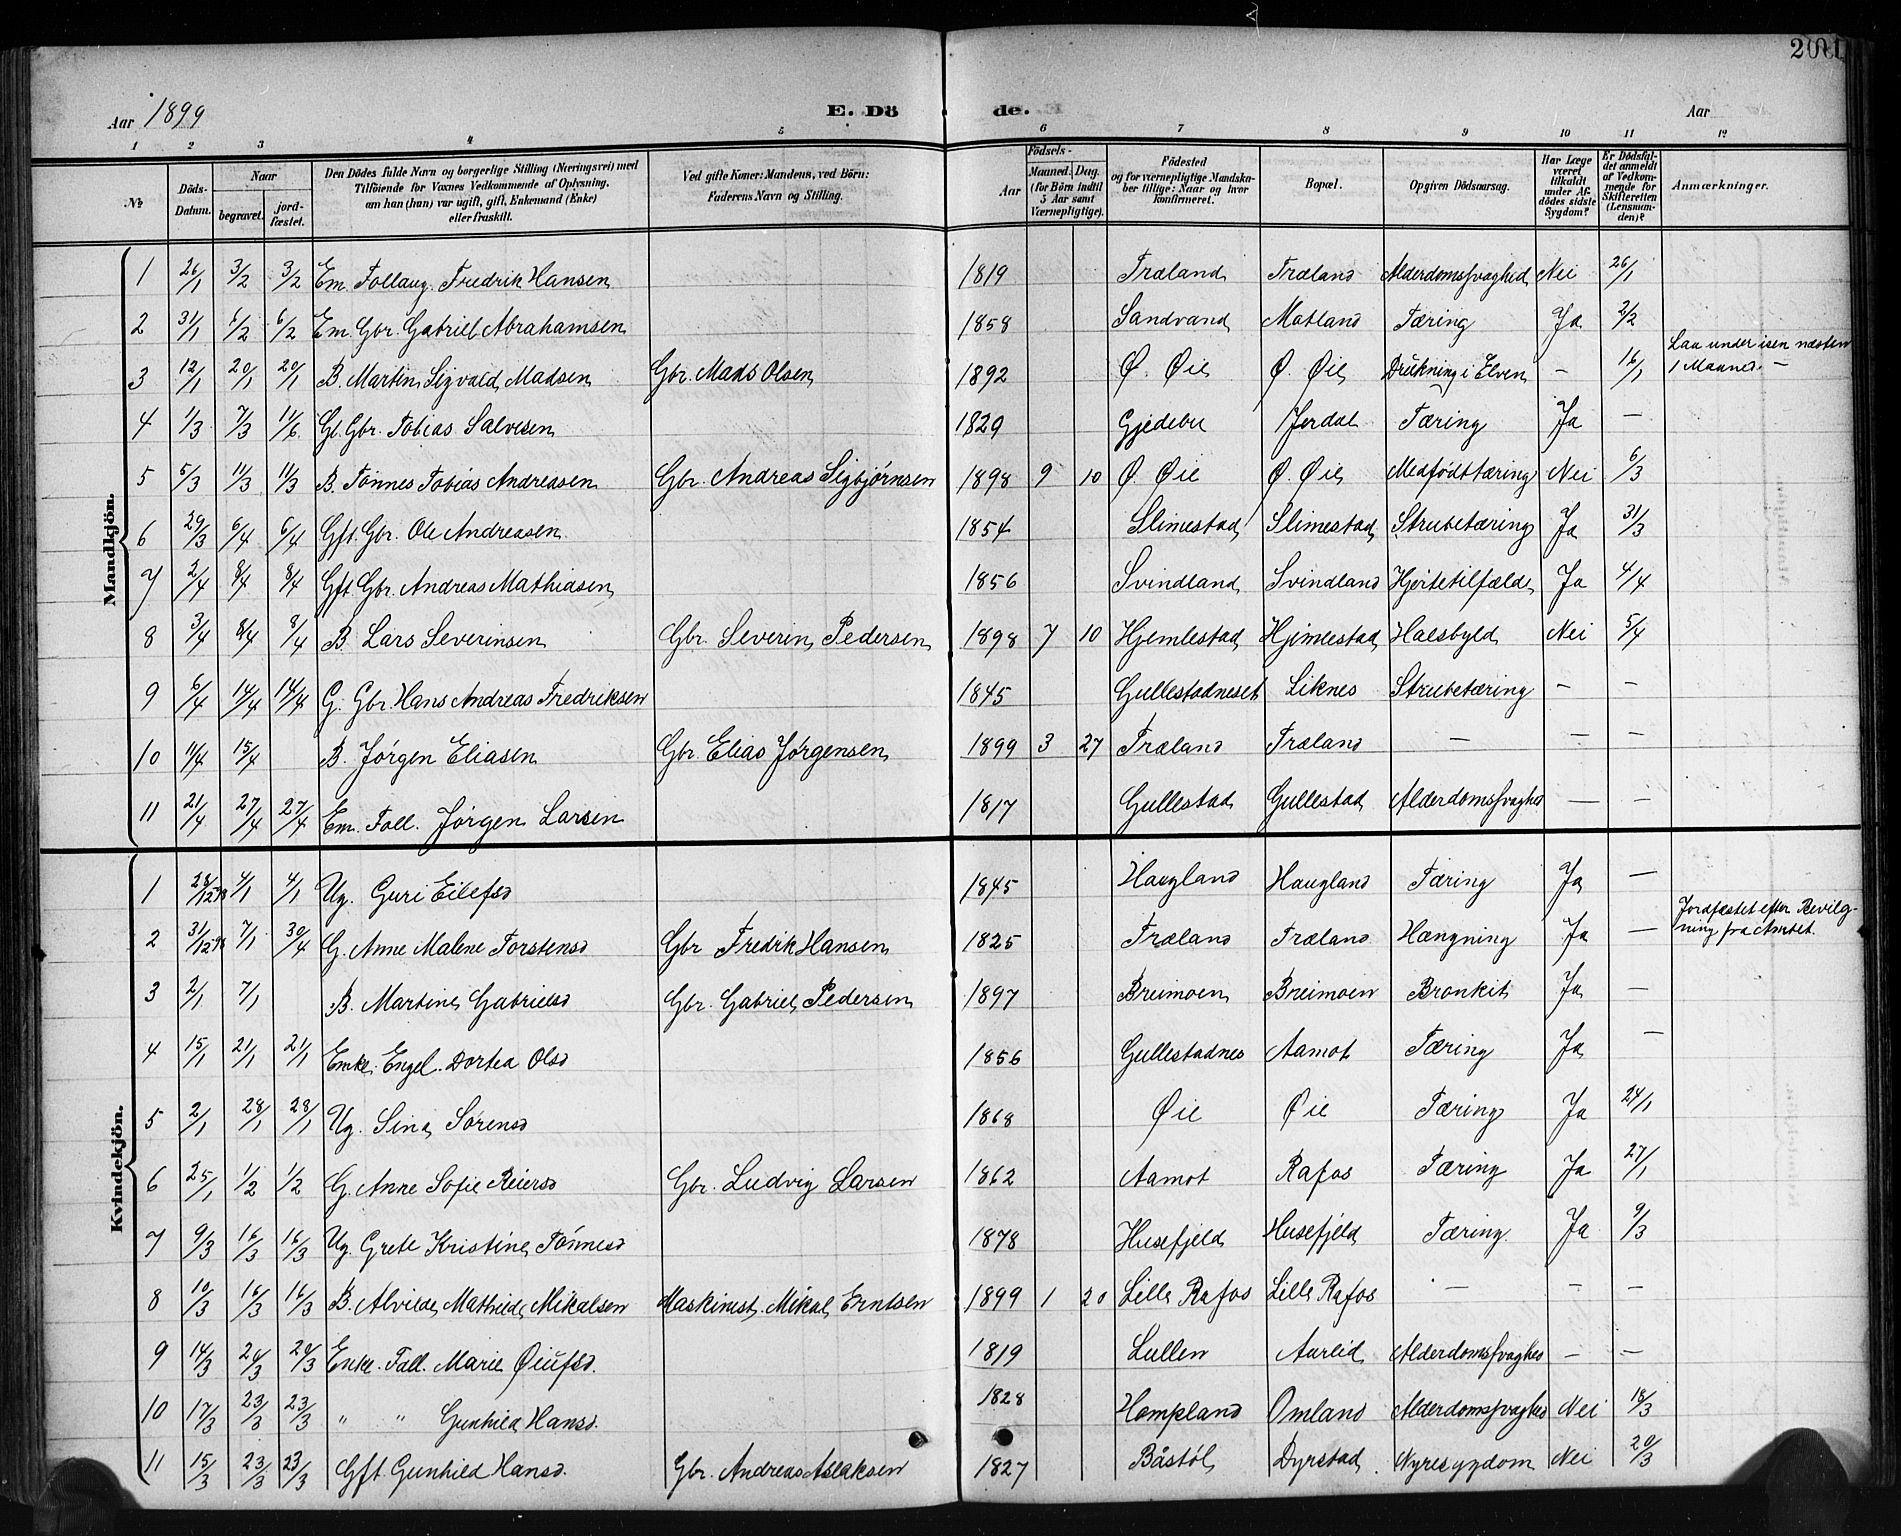 201
Aar 1899 E. Dö de. Aar
1 2 3 4 5 6 7 8 9 10 11 12
№ Döds-Datum. Naar begravet. jordfæstet. Den Dödes fulde Navn og borgerlige Stilling (Næringsvei) med Tilföiende for Voxnes Vedkommende af Oplysning, om han (hun) var ugift, gift, Enkemand (Enke) eller fraskilt. Ved gifte Koner: Mandens, ved Börn: Faderens Navn og Stilling. Födsels- Aar Maaned. Dag. (for Börn indtil 5 Aar samt Værnepligtige). Födested og for værnepligtige Mandskaber tillige: Naar og hvor konfirmeret. Bopæl. Opgiven Dödsaarsag. Har Læge været tilkaldt under Afdödes sidste Sygdom? Er Dödsfaldet anmeldt af Vedkommende for Skifteretten (Lensmanden)? Anmærkninger.
Mandkjön.
1 26/1 3/2 3/2 Em. Follaug. Fredrik Hansen 1819 Træland Træland Alderdomssvaghed Nei 26/1
2 31/1 6/2 6/2 Em. Gbr. Gabriel Abrahamsen 1858 Sandvand Matland Tæring Ja 2/2
3 12/1 20/1 20/1 B. Martin Sigvald Madsen Gbr. Mads Olsen 1892 Ø. Øie Ø. Øie Drukning i Elven – 16/1 Laa under isen næsten 1 Maaned. –
4 1/3 7/3 11/6 Gl. Gbr. Tobias Salvesen 1829 Gjedebu Jerdal Tæring Ja –
5 5/3 11/3 11/3 B. Tønnes Tobias Andreasen Gbr. Andreas Sigbjørnsen 1898 9 10 Ø. Øie Ø. Øie Medfødt tæring Nei 6/3
6 29/3 6/4 6/4 Gft. Gbr. Ole Andreasen 1854 Slimestad Slimestad Strubetæring Ja 31/3
7 2/4 8/4 8/4 Gft. Gbr. Andreas Mathiasen 1856 Svindland Svindland Hjertetilfælde Ja 4/4
8 3/4 8/4 8/4 B. Lars Severinsen Gbr. Severin Pedersen 1898 7 10 Hjemlestad Hjemlestad Halsbyld Nei 5/4
9 6/4 14/4 14/4 G. Gbr. Hans Andreas Fredriksen 1845 Gullestadneset Liknes Strubetæring – –
10 11/4 15/4 B. Jørgen Eliasen Gbr. Elias Jørgensen 1899 3 27 Træland Træland – – –
11 21/4 27/4 27/4 Em. Foll. Jørgen Larsen 1817 Gullestad Gullestad Alderdomssvaghed – –
Kvindekjön.
1 28/12 98 4/1 4/1 Ug. Guri Eilefsd 1845 Haugland Haugland Tæring Ja –
2 31/12 98 7/1 30/4 G. Anne Malene Torstensd Gbr Fredrik Hansen 1825 Træland Træland Hængning Ja – Jordfæstet efter Bevilgning fra Amtet.
3 2/1 7/1 B. Martine Gabrielsd Gbr. Gabriel Pedersen 1897 Breimoen Breimoen Bronkit Ja –
4 15/1 21/1 21/1 Enke. Engel. Dortea Olsd 1856 Gullestadnes Aamot Tæring Ja –
5 2/1 28/1 28/1 Ug. Sina Sørensd 1868 Øie Øie Tæring Ja 24/1
6 25/1 1/2 1/2 G. Anne Sofie Reiersd Gbr. Ludvig Larsen 1862 Aamot Rafos Tæring Ja 27/1
7 9/3 16/3 16/3 Ug. Grete Kristine Tønnesd 1878 Husefjeld Husefjeld Tæring Ja 9/3
8 10/3 16/3 16/3 B. Alvilde Mathilde Mikalsen Maskinist. Mikal Erntsen 1899 1 20 Lille Rafos Lille Rafos – – –
9 14/3 20/3 20/3 Enke. Fall. Marie Øiufsd. 1819 Lullen Aurlid Alderdomssvaghed – –
10 17/3 23/3 23/3 " " Gunhild Hansd. 1828 Hompland Omland Alderdomssvaghed Nei 18/3
11 15/3 23/3 23/3 Gft. Gunhild Hansd. Gbr. Andreas Aslaksen 1827 Båstøl Dyrstad Nyresygdom Nei 20/3